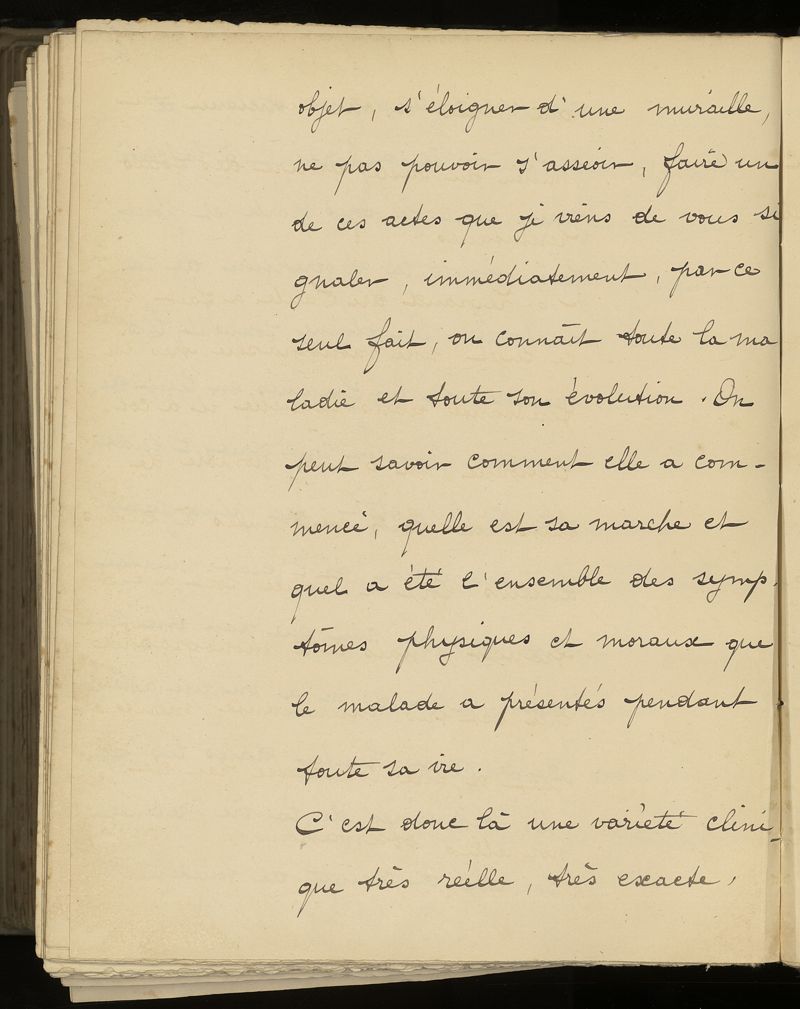 objet, s'éloigner d'une muraille,
ne pas pouvoir s'asseoir, faire un
de ces actes que je viens de vous si
gnaler, immédiatement, par ce
seul fait, on connaît toute la ma
ladie et toute son évolution. On
peut savoir comment elle a com-
mencé, quelle est sa marche et
quel a été l'ensemble des symp-
tômes physiques et moraux que
le malade a présentés pendant
toute sa vie.
C'est donc là une variété clini-
que très réelle, très exacte,